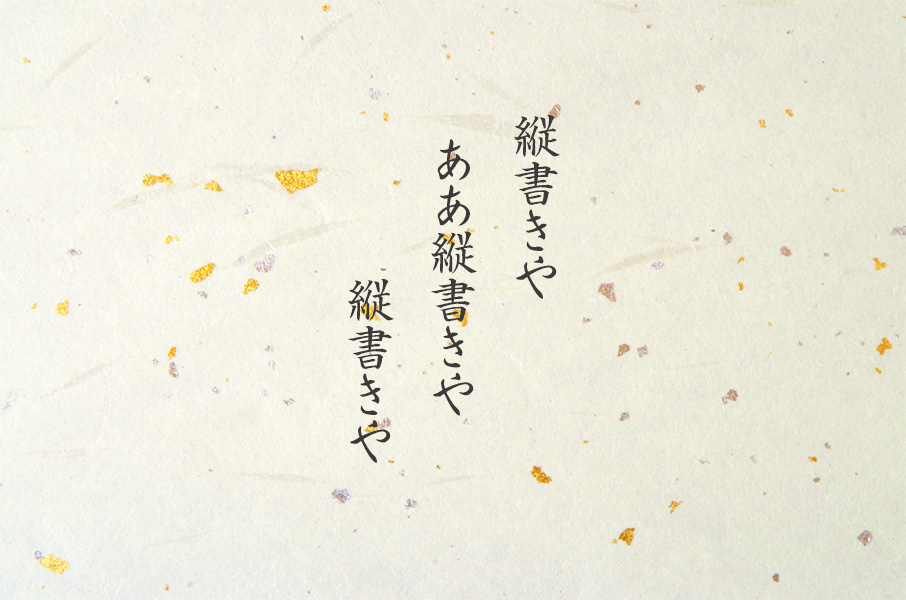 縦書きや
ああ縦書きや
縦書きや